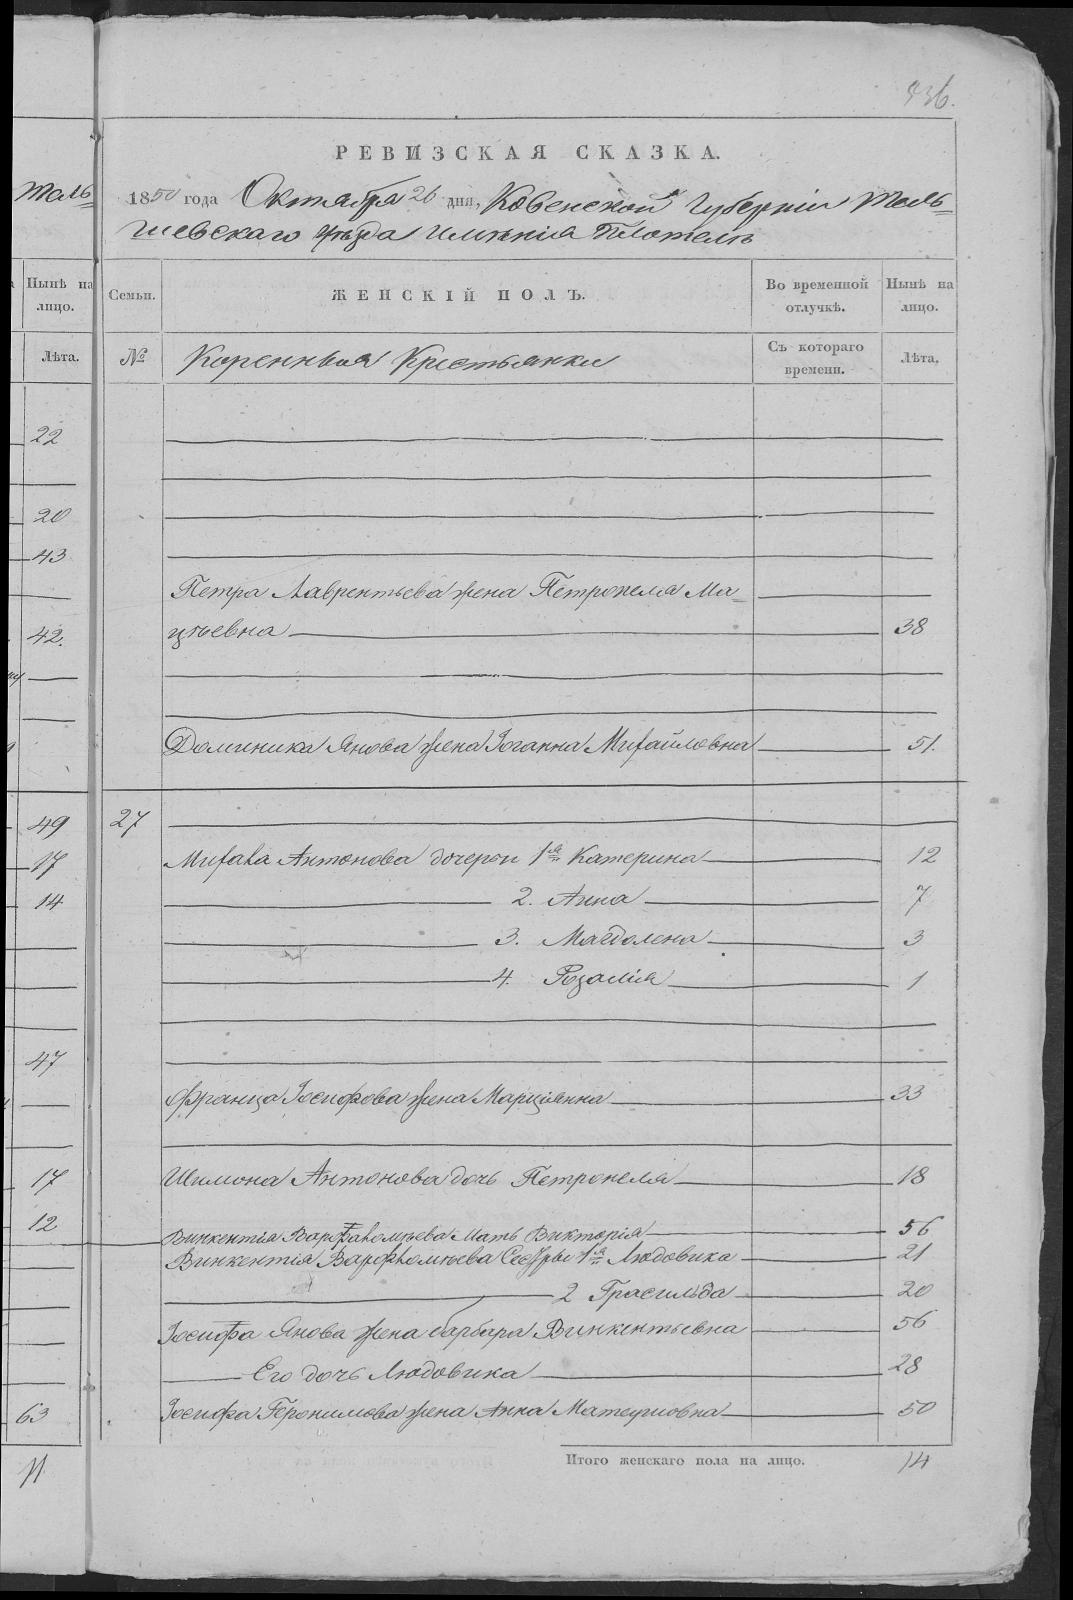 436.
РЕВИЗСКАЯ СКАЗКА.
Тель=
1850 года Октября 26 дня, Ковенской Губерніи Тель=
шевскаго уѣзда Имѣнія Плотель
Нынѣ на
лицо.
Лѣта.
Семьи.
ЖЕНСКІЙ ПОЛЪ.
Во временной
отлучкѣ.
Нынѣ на
лицо.
№
Коренныя Крестьянки
Съ котораго
времени.
Лѣта.
22
20
43
Петра Лаврентьева жена Петронеля Ма=
42. цѣевна 38
Доминика Янова жена Іоганна Михайловна 51.
49 27
17 Михала Антонова дочери 1я Катерина 12
14 2. Анна 7
3. Магдолена 3
4. Розалія 1
47
Франца Іосифова жена Марціянна 33
17 Шимона Антонова дочь Петронеля 18
12 Винкентія Варфоломѣева Мать Викторія 56
Винкентія Варфоломѣева Сестры 1я Людовика 21
2 Грасильда 20
Іосифа Янова жена Барбара Винкентьевна 56
Его дочь Людовика 28
63 Іосифа Геронимова жена Анна Матеушовна 50
11 Итого женскаго пола на лицо. 14